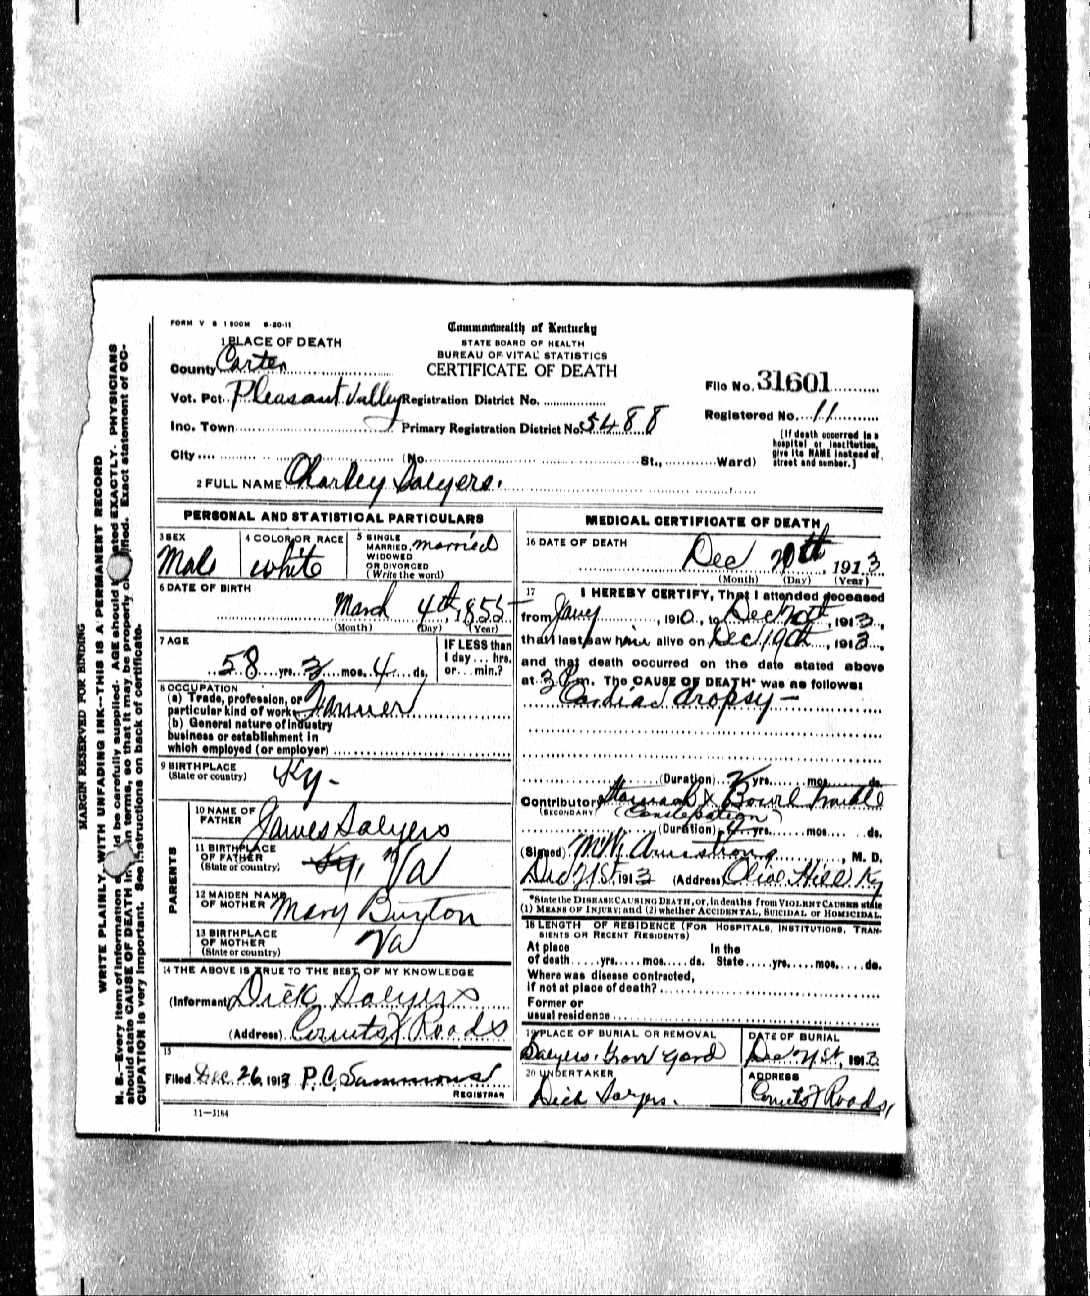 FORM V S 1 500M 8-20-11
Commonwealth of Kentucky
STATE BOARD OF HEALTH
BUREAU OF VITAL STATISTICS
CERTIFICATE OF DEATH
1 PLACE OF DEATH
County Carter
Vot. Pct. Pleasant Valley Registration District No.
Inc. Town Primary Registration District No. 5488
City (No. St., Ward)
File No. 31601
Registered No. 11
[If death occurred in a hospital or institution, give its NAME instead of street and number.]
2 FULL NAME Charley Salyers.
PERSONAL AND STATISTICAL PARTICULARS
3 SEX Male
4 COLOR OR RACE white
5 SINGLE MARRIED, WIDOWED OR DIVORCED (Write the word) married
6 DATE OF BIRTH
March 4th, 1855
(Month) (Day) (Year)
7 AGE
58 yrs. 3 mos. 4 ds.
IF LESS than 1 day... hrs. or... min.?
8 OCCUPATION
(a) Trade, profession, or particular kind of work Farmer
(b) General nature of industry business or establishment in which employed (or employer)
9 BIRTHPLACE (State or country) Ky-
PARENTS
10 NAME OF FATHER James Salyers
11 BIRTHPLACE OF FATHER (State or country) Ky, Va
12 MAIDEN NAME OF MOTHER Mary Burton
13 BIRTHPLACE OF MOTHER (State or country) Va
14 THE ABOVE IS TRUE TO THE BEST OF MY KNOWLEDGE
(Informant) Dick Salyers
(Address) Counts X Roads
15
Filed Dec 26, 1913 P.C. Sammons
REGISTRAR
11-3184
MEDICAL CERTIFICATE OF DEATH
16 DATE OF DEATH
Dec 20th, 1913
(Month) (Day) (Year)
17 I HEREBY CERTIFY, That I attended deceased
from Jany, 1910, to Dec 20th, 1913,
that I last saw him alive on Dec 19th, 1913,
and that death occurred on the date stated above
at 3 P.m. The CAUSE OF DEATH* was as follows:
Cardiac dropsy-
(Duration) 2 yrs. mos. ds.
Contributory Stomach & Bowel trouble
(SECONDARY) (Constipation)
(Duration) yrs. mos. ds.
(Signed) M.W. Armstrong, M. D.
Dec 21st, 1913 (Address) Olive Hill Ky
*State the DISEASE CAUSING DEATH, or, in deaths from VIOLENT CAUSES state
(1) MEANS OF INJURY; and (2) whether ACCIDENTAL, SUICIDAL or HOMICIDAL.
18 LENGTH OF RESIDENCE (FOR HOSPITALS, INSTITUTIONS, TRANSIENTS OR RECENT RESIDENTS)
At place of death yrs. mos. ds. In the State yrs. mos. ds.
Where was disease contracted,
if not at place of death?
Former or
usual residence
19 PLACE OF BURIAL OR REMOVAL Salyers. Grave Yard
DATE OF BURIAL Dec 21st, 1913
20 UNDERTAKER Dick Salyers.
ADDRESS Counts X Roads,
MARGIN RESERVED FOR BINDING
WRITE PLAINLY, WITH UNFADING INK—THIS IS A PERMANENT RECORD
N. B.—Every item of information should be carefully supplied. AGE should stated EXACTLY. PHYSICIANS
should state CAUSE OF DEATH in plain terms, so that it may be properly classified. Exact statement of OC-
CUPATION is very important. See instructions on back of certificate.